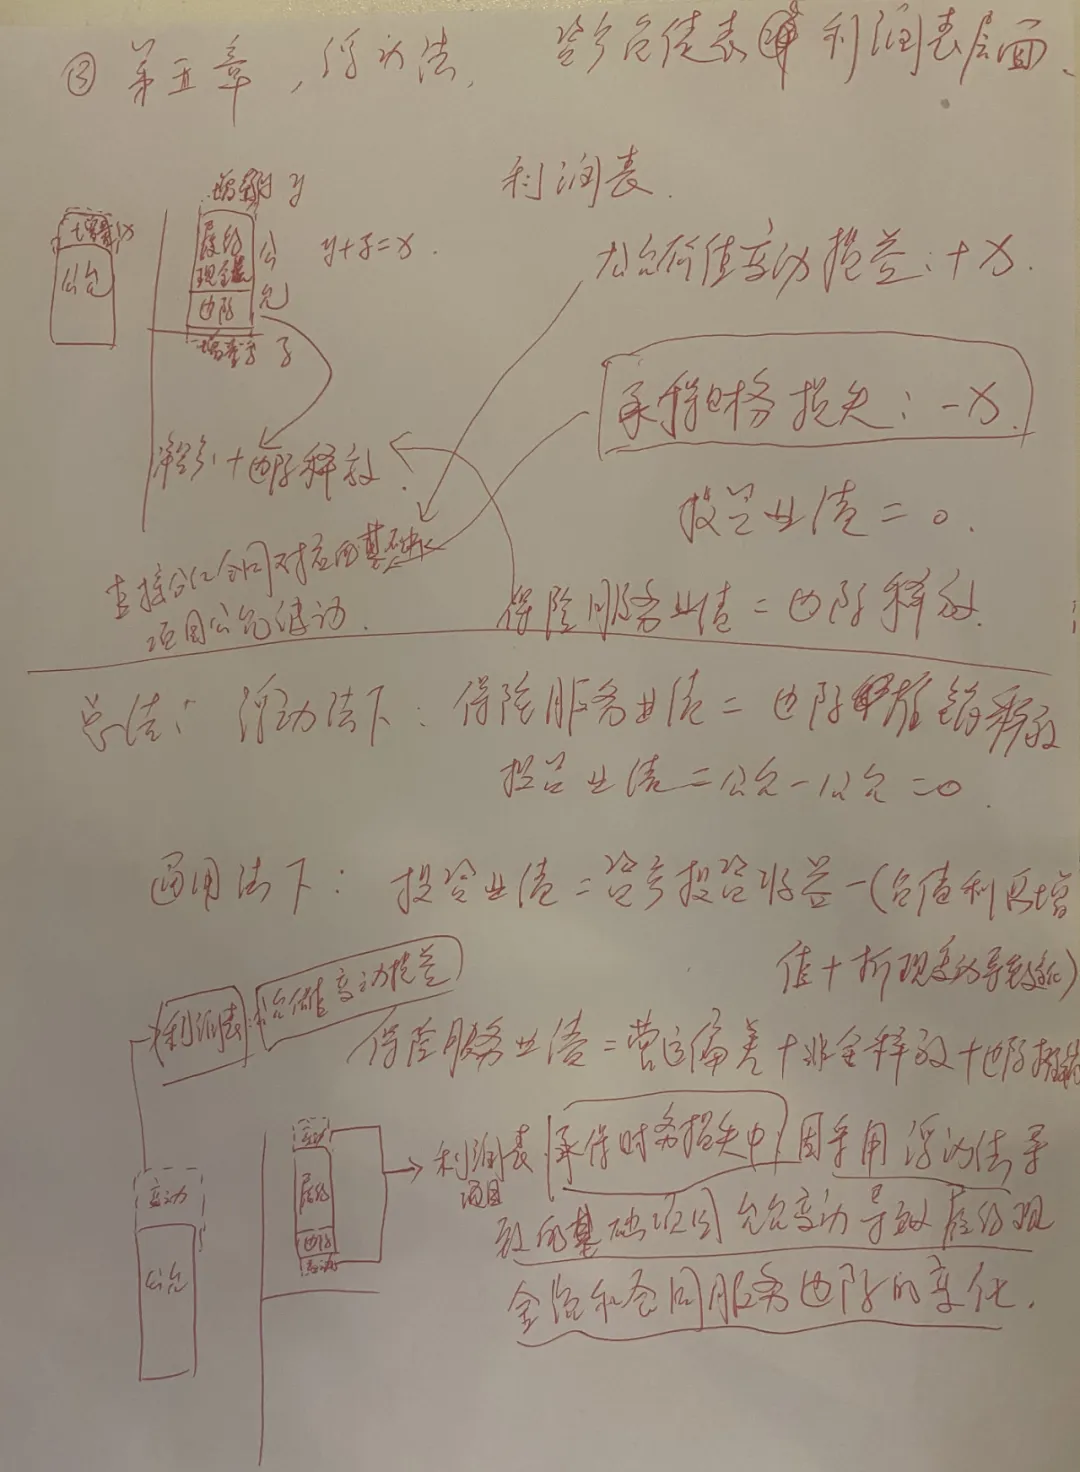 ③ 第五章，浮动法， 资产负债表 利润表层面、
利润表
增额 y
增额 x
公允
履约
现金流
边际
公
允
y+z=x.
增额 z
公允价值变动损益：+x.
承保财务损失：-x.
净资产+边际释放
投资业绩=0.
直接分红合同对应的基础
项目公允波动.
保险服务业绩=边际释放.
总结：浮动法下：保险服务业绩=边际摊销释放
投资业绩=公允-公允=0.
通用法下：投资业绩=资产投资收益-(负债利息增
值+折现变动导致变化)
利润表：公允价值变动损益
保险服务业绩=营运偏差+非金释放+边际摊销
变动
履约
边际
变动
公允
利润表
项目
承保财务损失中 因采用浮动法导
致的基础项目公允变动导致履约现
金流和合同服务边际的变化.